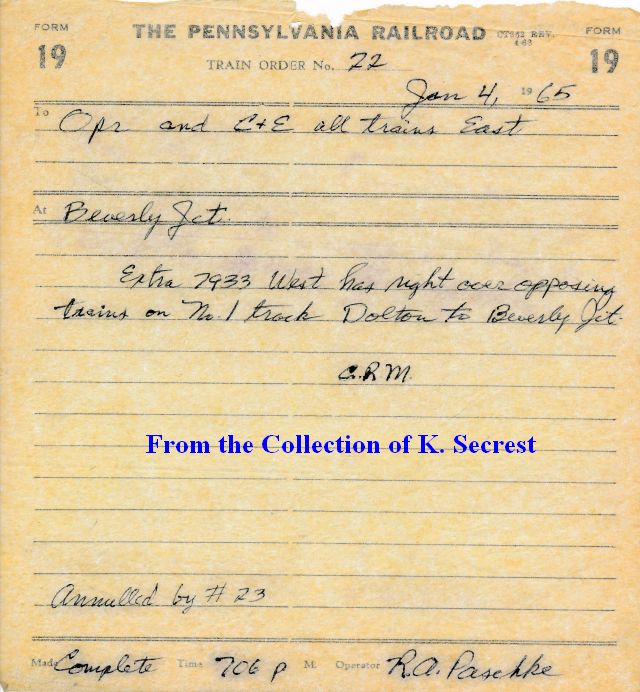 FORM THE PENNSYLVANIA RAILROAD CT652 REV. 4-63 FORM
19 TRAIN ORDER No. 22 19
Jan 4, 1965
To Opr and C+E all trains East
At Beverly Jct.
Extra 7933 West has right over opposing
trains on No. 1 track Dolton to Beverly Jct.
C.R.M.
From the Collection of K. Secrest
Annulled by # 23
Made Complete Time 706 P M. Operator R.A. Paschke